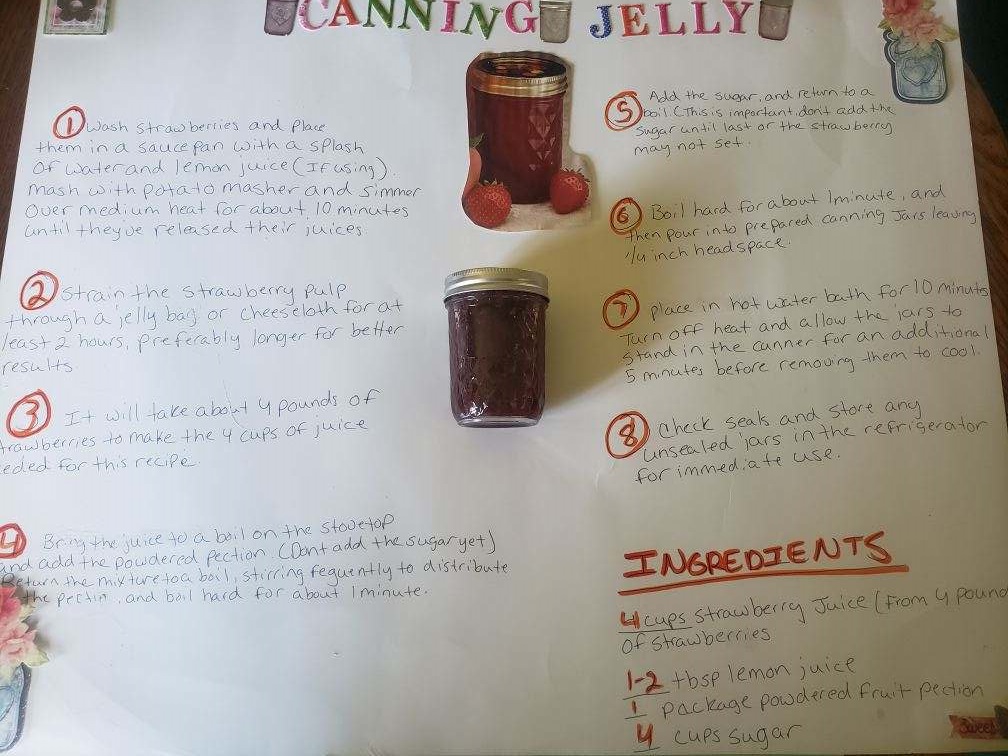 CANNING JELLY
1 Wash strawberries and place
them in a saucepan with a splash
of water and lemon juice (If using).
mash with potato masher and simmer
over medium heat for about 10 minutes
until theyve released their juices.
2 strain the strawberry pulp
through a jelly bag or cheesecloth for at
least 2 hours, preferably longer for better
results.
3 It will take about 4 pounds of
trawberries to make the 4 cups of juice
eded for this recipe.
4 Bring the juice to a boil on the stovetop
and add the powdered pection (Dont add the sugar yet)
Return the mixture to a boil, stirring fequently to distribute
the pectin, and boil hard for about 1 minute.
5 Add the sugar, and return to a
boil. (This is important, dont add the
sugar until last or the strawberry
may not set.
6 Boil hard for about 1 minute, and
then pour into prepared canning Jars leaving
1/4 inch headspace.
7 place in hot water bath for 10 minutes
Turn off heat and allow the jars to
stand in the canner for an additional
5 minutes before removing them to cool.
8 Check seals and store any
unsealed jars in the refrigerator
for immediate use.
INGREDIENTS
4 cups strawberry Juice (From 4 pound
of strawberries
1-2 tbsp lemon juice
1 package powdered fruit pection
4 cups sugar
Sweet